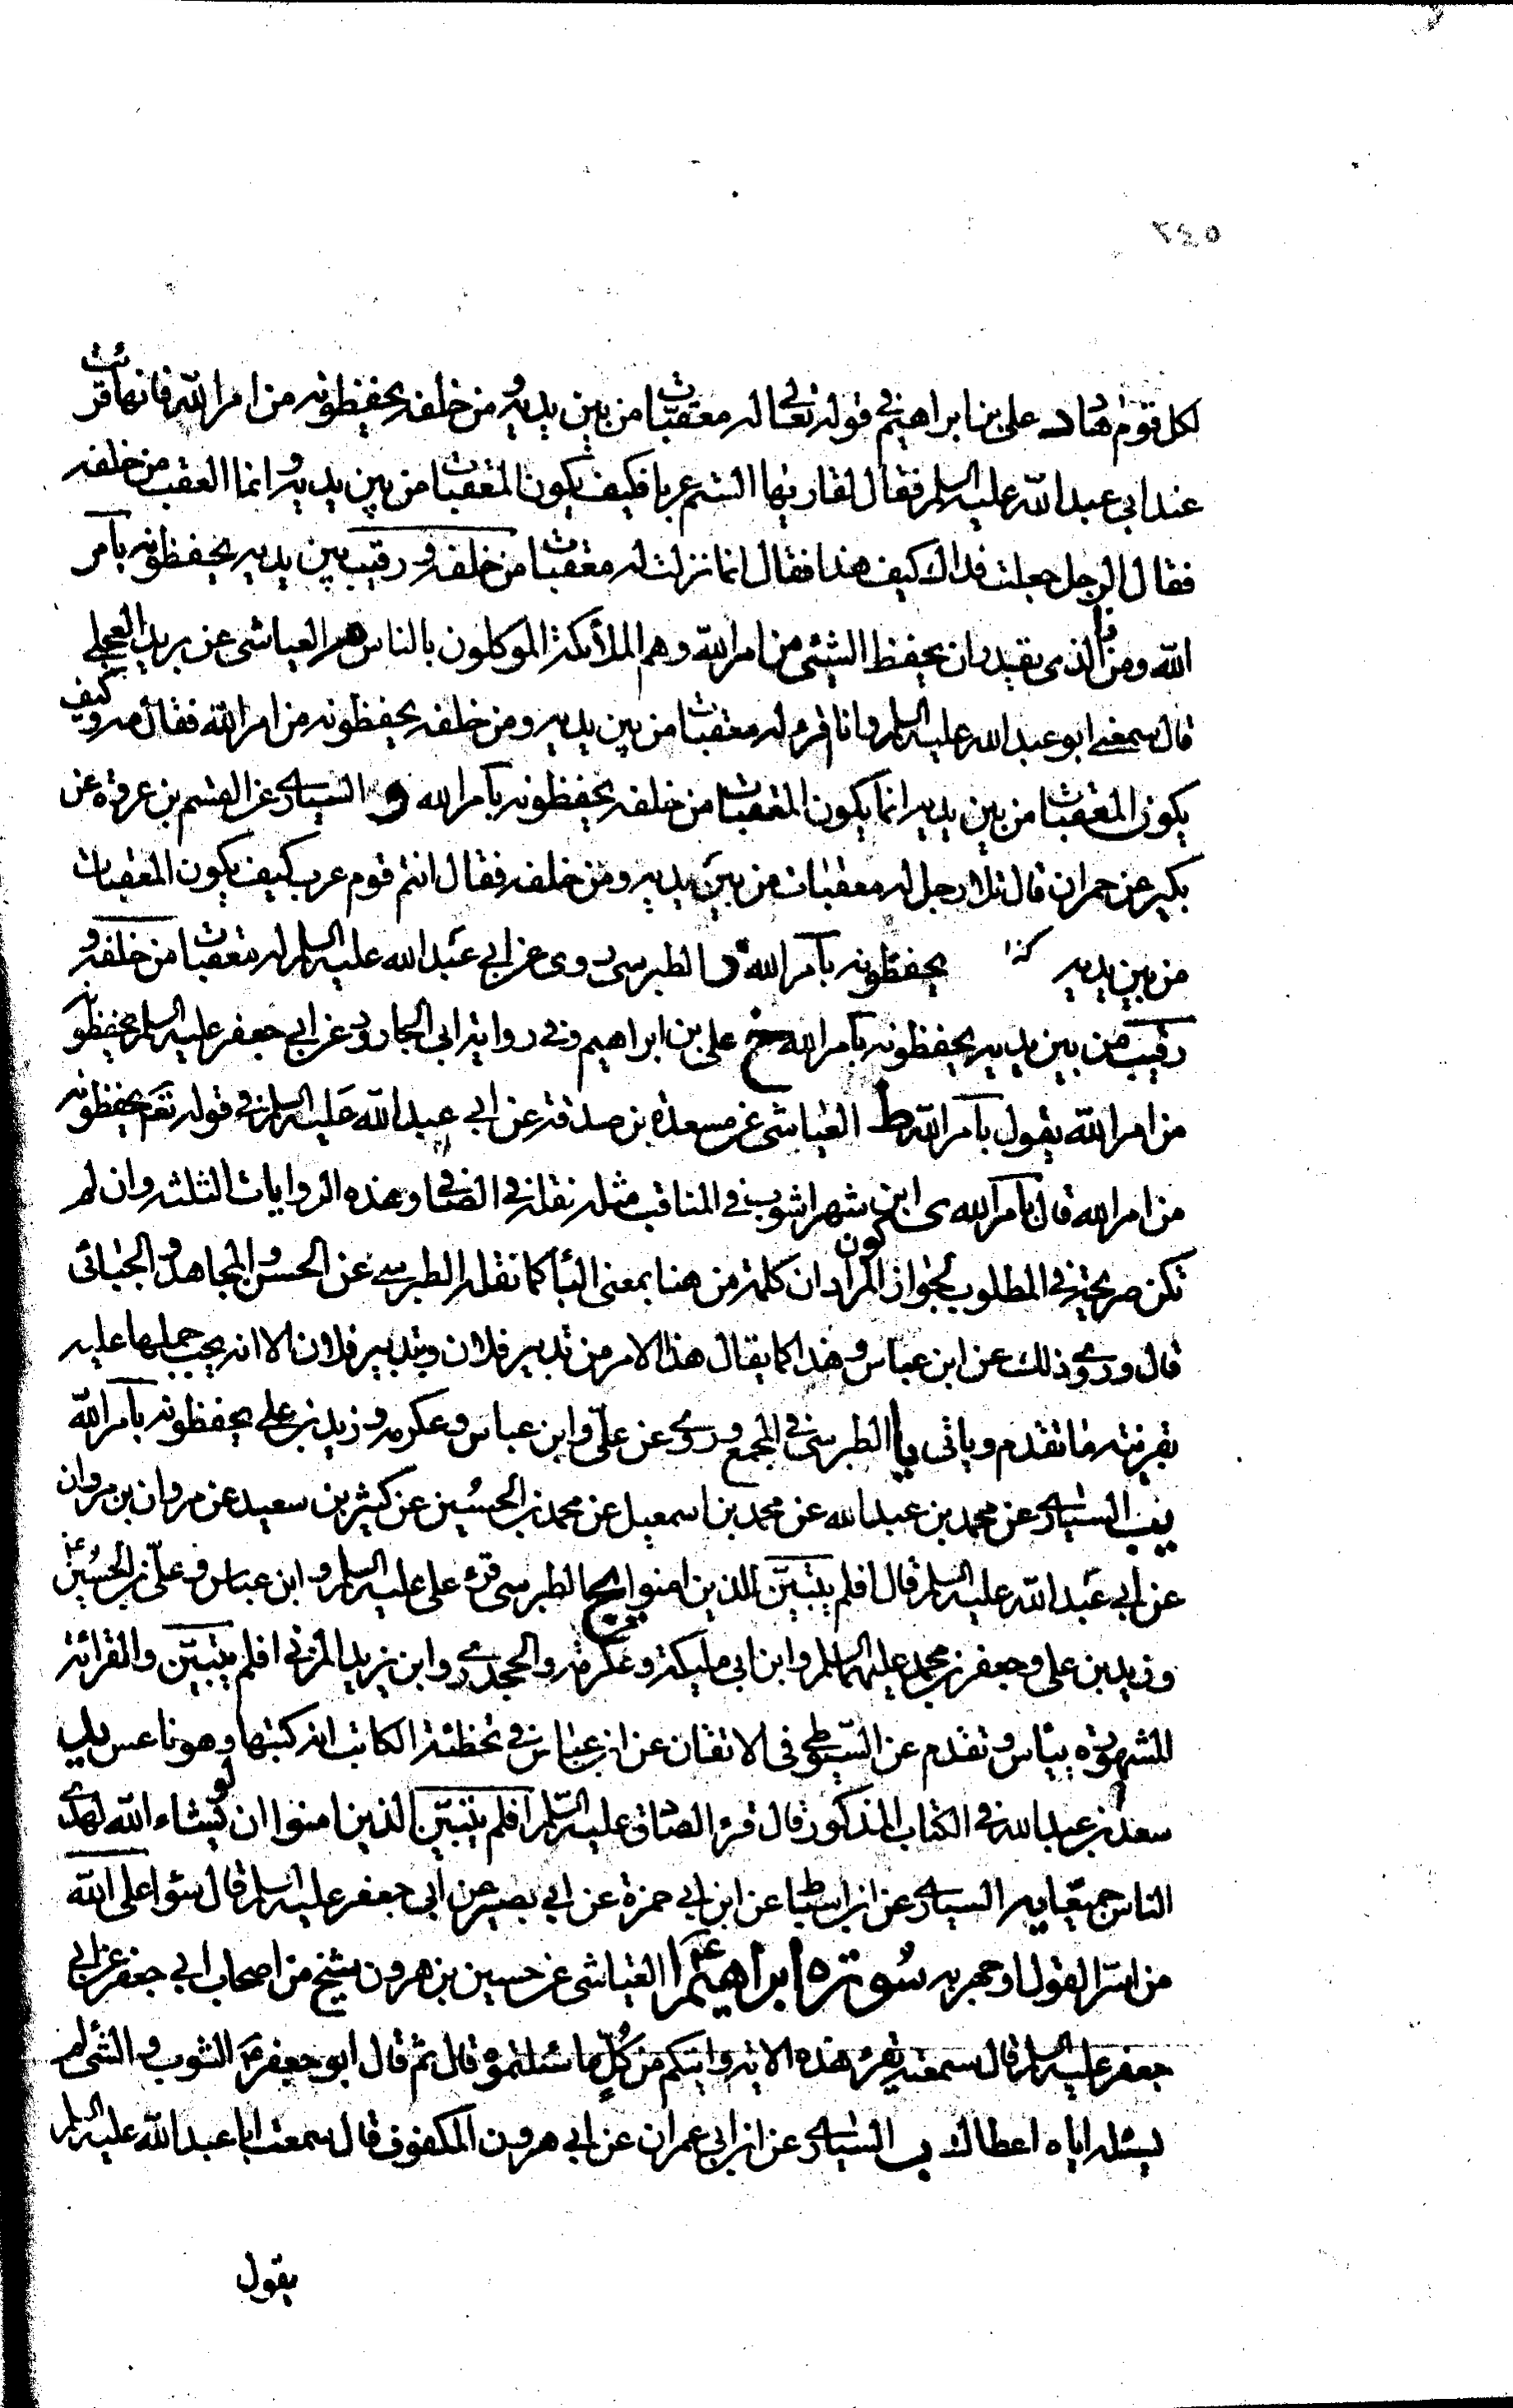 ٢٤٥
لكل قوم هاد د علي بن ابراهيم في قوله تعالى له معقبات من بين يديه ومن خلفه يحفظونه من امر الله فانها قرئت
عند ابي عبد الله عليه السلم فقال لقاريها الستم عربا فكيف يكون المعقبات من بين يديه وانما العقب من خلفه
فقال الرجل جعلت فداك كيف هذا فقال انما نزلت له معقبات من خلفه ورقيب بين يديه يحفظونه بامر
الله ومن ذا الذي يقدر ان يحفظ الشيئ من امر الله وهم الملائكة الموكلون بالناس ه العياشي عن بريد العجلي
قال سمعني ابو عبد الله عليه السلم وانا اقرء له معقبات من بين يديه ومن خلفه يحفظونه من امر الله فقال مه وكيف
يكون المعقبات من بين يديه انما يكون المعقبات من خلفه يحفظونه بامر الله و السياري عن القسم بن عروة عن
بكير عن حمران قال تلا رجل له معقبات من بين يديه ومن خلفه فقال انتم قوم عرب كيف يكون المعقبات
من بين يديه كذا يحفظونه بامر الله ز الطبرسي روى عن ابي عبد الله عليه السلم له معقبات من خلفه و
رقيب من بين يديه يحفظونه بامر الله ح علي بن ابراهيم وفي رواية ابي الجارود عن ابي جعفر عليه السلم يحفظونه
من امر الله يقول بامر الله ط العياشي عن مسعدة بن صدقة عن ابي عبد الله عليه السلم في قوله تعم يحفظونه
من امر الله قال بامر الله ى ابن شهراشوب في المناقب مثله نقله في الصافي وهذه الروايات الثلثه وان لم
تكن صريحة في المطلوب لجواز كون المراد ان كلمة من هنا بمعنى الباء كما نقله الطبرسي عن الحسن والمجاهد والجبائي
قال وروي ذلك عن ابن عباس وهذا كما يقال هذا الامر من تدبير فلان وبتدبير فلان الا انه يجب حملها عليه
بقرينة ما تقدم وياتي يا الطبرسي في المجمع وروي عن علي وابن عباس وعكرمه وزيد بن علي يحفظونه بامر الله
يب السياري عن محمد بن عبد الله عن محمد بن اسمعيل عن محمد بن الحسين عن كثير بن سعيد عن مروان بن مروان
عن ابي عبد الله عليه السلم قال افلم يتبين الذين امنوا يج الطبرسي قرء علي عليه السلم وابن عباس وعلي بن الحسين ع
وزيد بن علي وجعفر بن محمد عليهما السلم وابن ابي مليكة وعكرمه والجحدري وابن زيد المزني افلم يتبين والقرائة
المشهورة ييأس وتقدم عن السيوطي في الاتقان عن ابن عباس في تخطئة الكاتب انه كتبها وهو ناعس يد
سعد بن عبد الله في الكتاب المذكور قال قرء الصادق عليه السلم افلم يتبين الذين امنوا ان لو يشاء الله لهدى
الناس جميعا يه السياري عن ابن اسباط عن ابن ابي حمزة عن ابي بصير عن ابي جعفر عليه السلم قال سواء على الله
من اسر القول او جهر به سورة ابراهيم ع ا العياشي عن حسين بن هرون شيخ من اصحاب ابي جعفر عن ابي
جعفر عليه السلم قال سمعته يقرء هذه الاية واتيكم من كلٍ ما سئلتموه قال ثم قال ابو جعفر ع الثوب والشئ لم
يسئله اياه اعطاك ب السياري عن ابن ابي عمران عن ابي هرون المكفوف قال سمعت ابا عبد الله عليه السلم
يقول